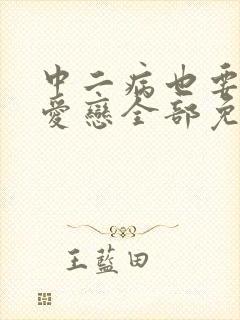 中二病也要
愛戀全部免
王藍田